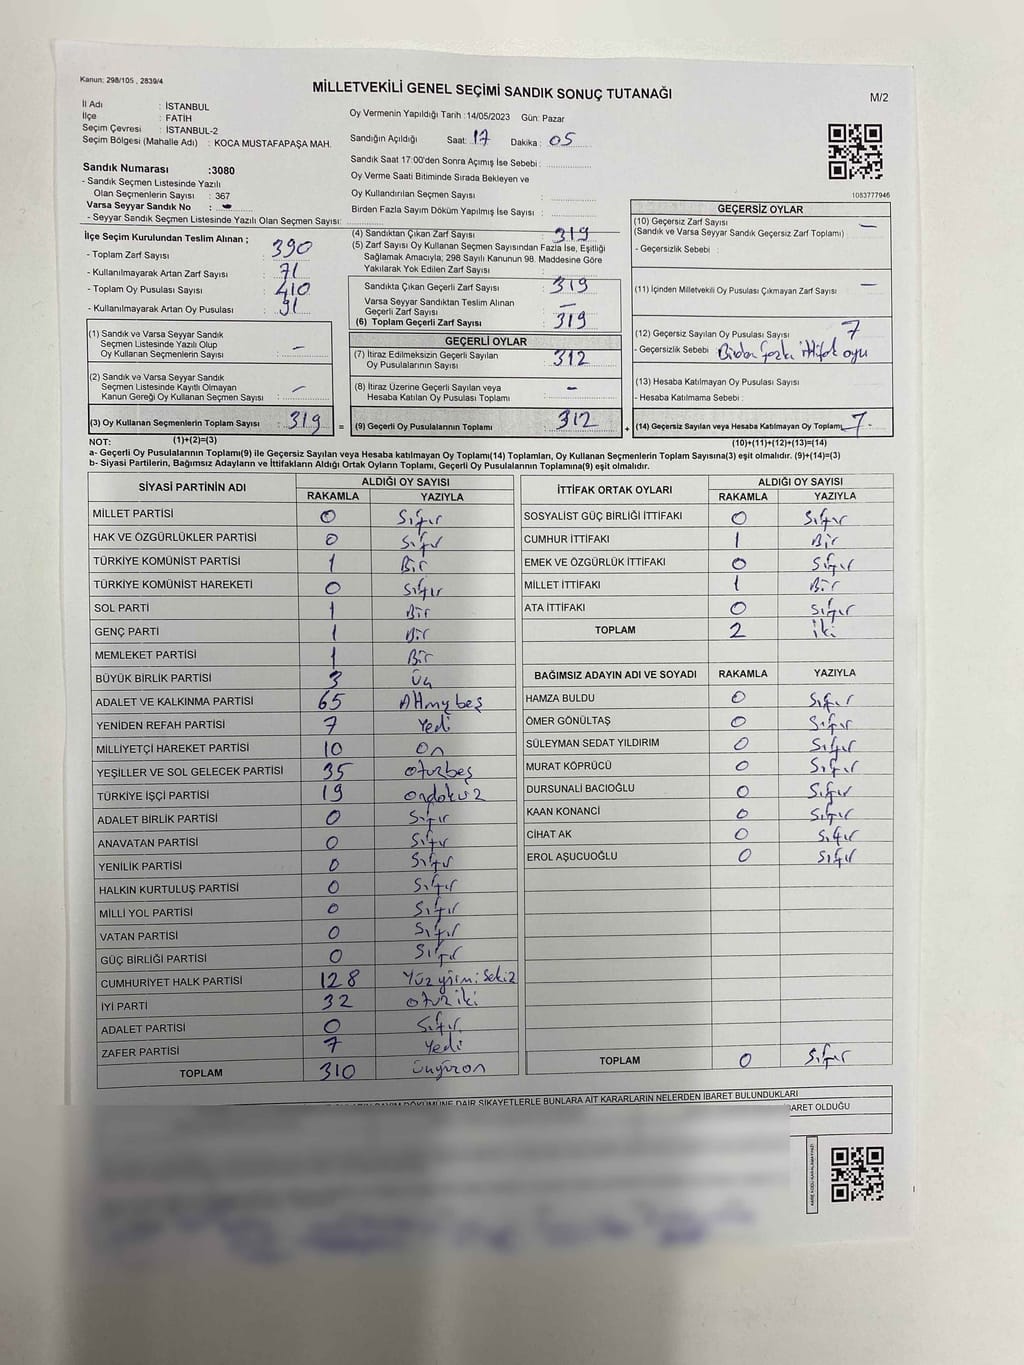 Kanun: 298/105 , 2839/4
MİLLETVEKİLİ GENEL SEÇİMİ SANDIK SONUÇ TUTANAĞI
M/2
İl Adı : İSTANBUL
İlçe : FATİH
Seçim Çevresi : İSTANBUL-2
Seçim Bölgesi (Mahalle Adı) : KOCA MUSTAFAPAŞA MAH.
Oy Vermenin Yapıldığı Tarih :14/05/2023 Gün: Pazar
Sandığın Açıldığı Saat: 17 Dakika : 05
Sandık Saat 17:00'den Sonra Açımış İse Sebebi :
Oy Verme Saati Bitiminde Sırada Bekleyen ve
Oy Kullandırılan Seçmen Sayısı :
Birden Fazla Sayım Döküm Yapılmış İse Sayısı :
1083777946
Sandık Numarası :3080
- Sandık Seçmen Listesinde Yazılı
Olan Seçmenlerin Sayısı : 367
Varsa Seyyar Sandık No : -
- Seyyar Sandık Seçmen Listesinde Yazılı Olan Seçmen Sayısı:
İlçe Seçim Kurulundan Teslim Alınan ;
- Toplam Zarf Sayısı : 390
- Kullanılmayarak Artan Zarf Sayısı : 71
- Toplam Oy Pusulası Sayısı : 410
- Kullanılmayarak Artan Oy Pusulası : 91
(1) Sandık ve Varsa Seyyar Sandık
Seçmen Listesinde Yazılı Olup
Oy Kullanan Seçmenlerin Sayısı : -
(2) Sandık ve Varsa Seyyar Sandık
Seçmen Listesinde Kayıtlı Olmayan
Kanun Gereği Oy Kullanan Seçmen Sayısı : -
(3) Oy Kullanan Seçmenlerin Toplam Sayısı : 319
(4) Sandıktan Çıkan Zarf Sayısı : 319
(5) Zarf Sayısı Oy Kullanan Seçmen Sayısından Fazla İse, Eşitliği
Sağlamak Amacıyla; 298 Sayılı Kanunun 98. Maddesine Göre
Yakılarak Yok Edilen Zarf Sayısı :
Sandıkta Çıkan Geçerli Zarf Sayısı : 319
Varsa Seyyar Sandıktan Teslim Alınan
Geçerli Zarf Sayısı : -
(6) Toplam Geçerli Zarf Sayısı : 319
GEÇERLİ OYLAR
(7) İtiraz Edilmeksizin Geçerli Sayılan
Oy Pusulalarının Sayısı : 312
(8) İtiraz Üzerine Geçerli Sayılan veya
Hesaba Katılan Oy Pusulası Toplamı : -
= (9) Geçerli Oy Pusulalarının Toplamı : 312
GEÇERSİZ OYLAR
(10) Geçersiz Zarf Sayısı
(Sandık ve Varsa Seyyar Sandık Geçersiz Zarf Toplamı) : -
- Geçersizlik Sebebi :
(11) İçinden Milletvekili Oy Pusulası Çıkmayan Zarf Sayısı : -
(12) Geçersiz Sayılan Oy Pusulası Sayısı : 7
- Geçersizlik Sebebi : Birden fazla ittifak oyu
(13) Hesaba Katılmayan Oy Pusulası Sayısı :
- Hesaba Katılmama Sebebi :
+ (14) Geçersiz Sayılan veya Hesaba Katılmayan Oy Toplamı : 7
NOT: (1)+(2)=(3)
(10)+(11)+(12)+(13)=(14)
a- Geçerli Oy Pusulalarının Toplamı(9) ile Geçersiz Sayılan veya Hesaba katılmayan Oy Toplamı(14) Toplamları, Oy Kullanan Seçmenlerin Toplam Sayısına(3) eşit olmalıdır. (9)+(14)=(3)
b- Siyasi Partilerin, Bağımsız Adayların ve İttifakların Aldığı Ortak Oyların Toplamı, Geçerli Oy Pusulalarının Toplamına(9) eşit olmalıdır.
SİYASİ PARTİNİN ADI ALDIĞI OY SAYISI
RAKAMLA YAZIYLA
MİLLET PARTİSİ 0 Sıfır
HAK VE ÖZGÜRLÜKLER PARTİSİ 0 Sıfır
TÜRKİYE KOMÜNİST PARTİSİ 1 Bir
TÜRKİYE KOMÜNİST HAREKETİ 0 Sıfır
SOL PARTİ 1 Bir
GENÇ PARTİ 1 Bir
MEMLEKET PARTİSİ 1 Bir
BÜYÜK BİRLİK PARTİSİ 3 Üç
ADALET VE KALKINMA PARTİSİ 65 Altmışbeş
YENİDEN REFAH PARTİSİ 7 Yedi
MİLLİYETÇİ HAREKET PARTİSİ 10 On
YEŞİLLER VE SOL GELECEK PARTİSİ 35 Oturbeş
TÜRKİYE İŞÇİ PARTİSİ 19 Ondokuz
ADALET BİRLİK PARTİSİ 0 Sıfır
ANAVATAN PARTİSİ 0 Sıfır
YENİLİK PARTİSİ 0 Sıfır
HALKIN KURTULUŞ PARTİSİ 0 Sıfır
MİLLİ YOL PARTİSİ 0 Sıfır
VATAN PARTİSİ 0 Sıfır
GÜÇ BİRLİĞİ PARTİSİ 0 Sıfır
CUMHURİYET HALK PARTİSİ 128 Yüzyirmisekiz
İYİ PARTİ 32 Otuziki
ADALET PARTİSİ 0 Sıfır
ZAFER PARTİSİ 7 Yedi
TOPLAM 310 Üçyüzon
İTTİFAK ORTAK OYLARI ALDIĞI OY SAYISI
RAKAMLA YAZIYLA
SOSYALİST GÜÇ BİRLİĞİ İTTİFAKI 0 Sıfır
CUMHUR İTTİFAKI 1 Bir
EMEK VE ÖZGÜRLÜK İTTİFAKI 0 Sıfır
MİLLET İTTİFAKI 1 Bir
ATA İTTİFAKI 0 Sıfır
TOPLAM 2 İki
BAĞIMSIZ ADAYIN ADI VE SOYADI RAKAMLA YAZIYLA
HAMZA BULDU 0 Sıfır
ÖMER GÖNÜLTAŞ 0 Sıfır
SÜLEYMAN SEDAT YILDIRIM 0 Sıfır
MURAT KÖPRÜCÜ 0 Sıfır
DURSUNALİ BACIOĞLU 0 Sıfır
KAAN KONANCİ 0 Sıfır
CİHAT AK 0 Sıfır
EROL AŞUCUOĞLU 0 Sıfır
TOPLAM 0 Sıfır
SAYIM DÖKÜMÜNE DAİR ŞİKAYETLERLE BUNLARA AİT KARARLARIN NELERDEN İBARET BULUNDUKLARI
BARET OLDUĞU